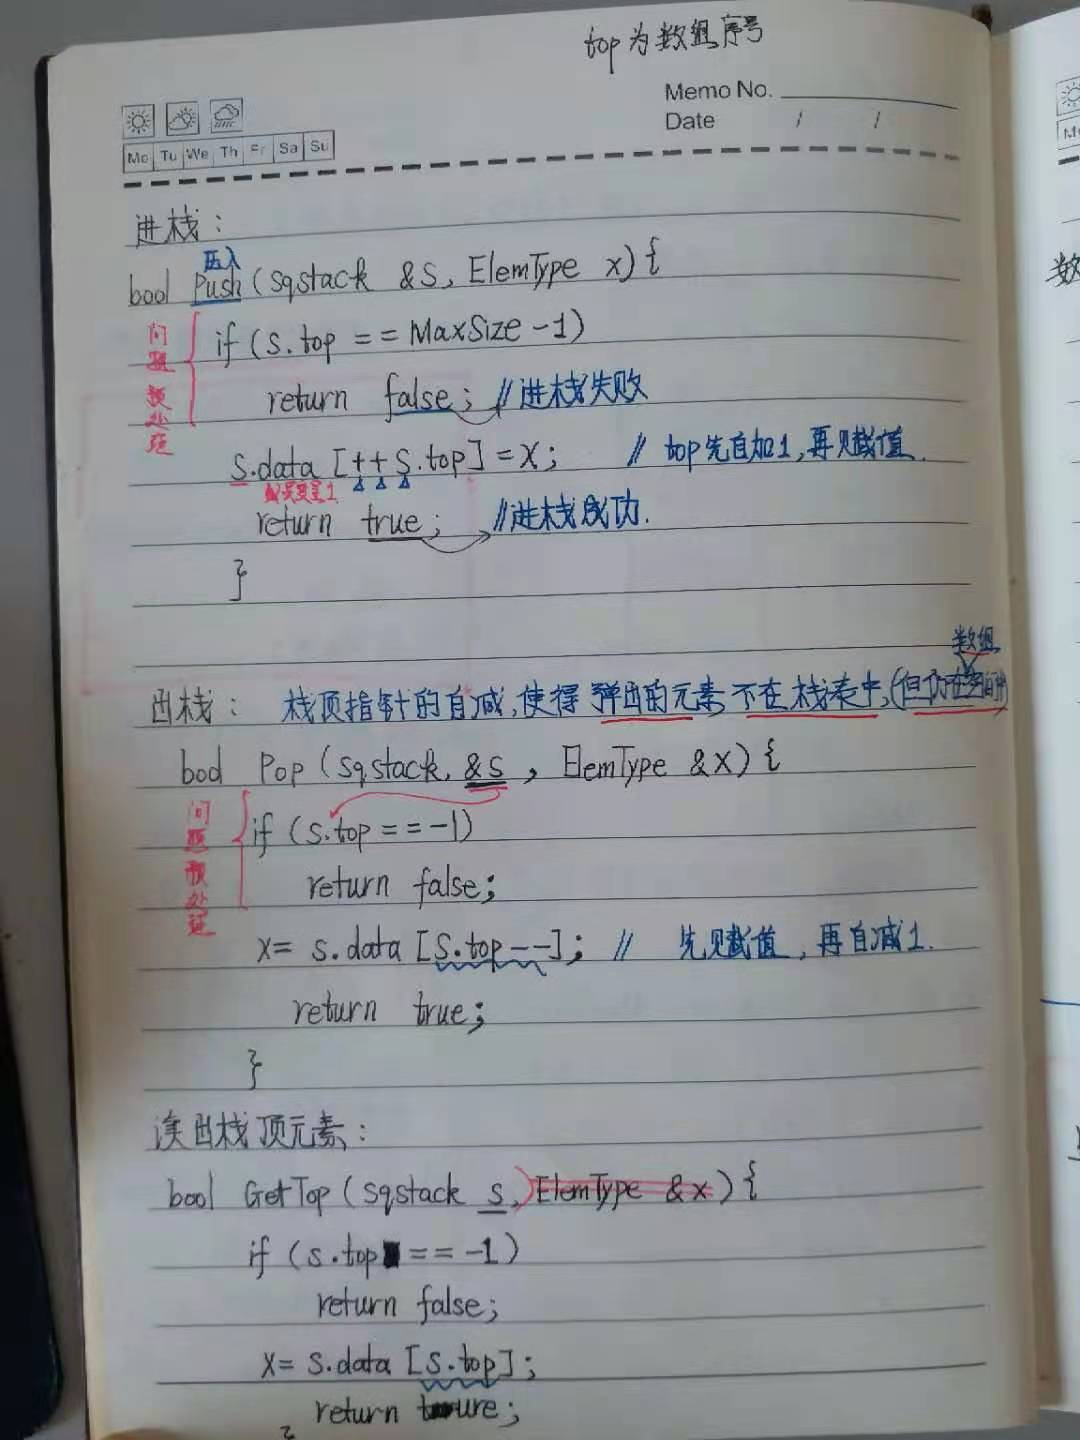 top为数组序号
Memo No.
Date / /
Mo Tu We Th Fr Sa Su
进栈:
压入
bool Push (sqstack &S, ElemType x){
问题预处理
if (s.top == MaxSize -1)
return false; //进栈失败
s.data [++S.top] = x; // top先自加1,再赋值.
return true; //进栈成功.
}
数组
出栈: 栈顶指针的自减,使得 弹出的元素 不在栈表中,(但仍在空间中)
bool Pop (sqstack &S, ElemType &x){
问题预处理
if (s.top == -1)
return false;
x= s.data [S.top--]; // 先赋值,再自减1.
return true;
}
读出栈顶元素:
bool GetTop (sqstack s,) ElemType &x){
if (s.top == -1)
return false;
x= s.data [s.top];
return ture;
数